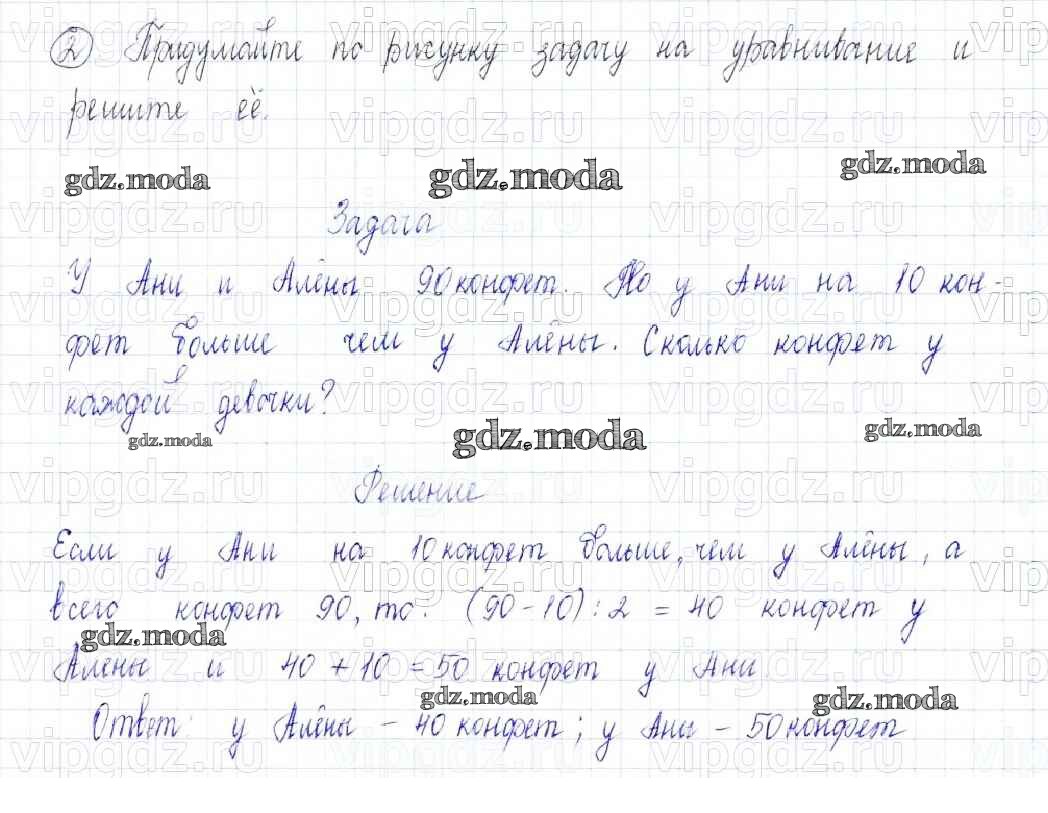 ② Придумайте по рисунку задачу на уравнивание и
решите её.
gdz.moda gdz.moda gdz.moda
Задача
У Ани и Алёны 90 конфет. Но у Ани на 10 кон-
фет больше чем у Алёны. Сколько конфет у
каждой девочки?
gdz.moda gdz.moda gdz.moda
Решение
Если у Ани на 10 конфет больше, чем у Алёны, а
всего конфет 90, то: (90-10):2 = 40 конфет у
gdz.moda
Алены и 40+10=50 конфет у Ани.
gdz.moda gdz.moda
Ответ: у Алёны - 40 конфет; у Ани - 50 конфет
vipgdz.ru